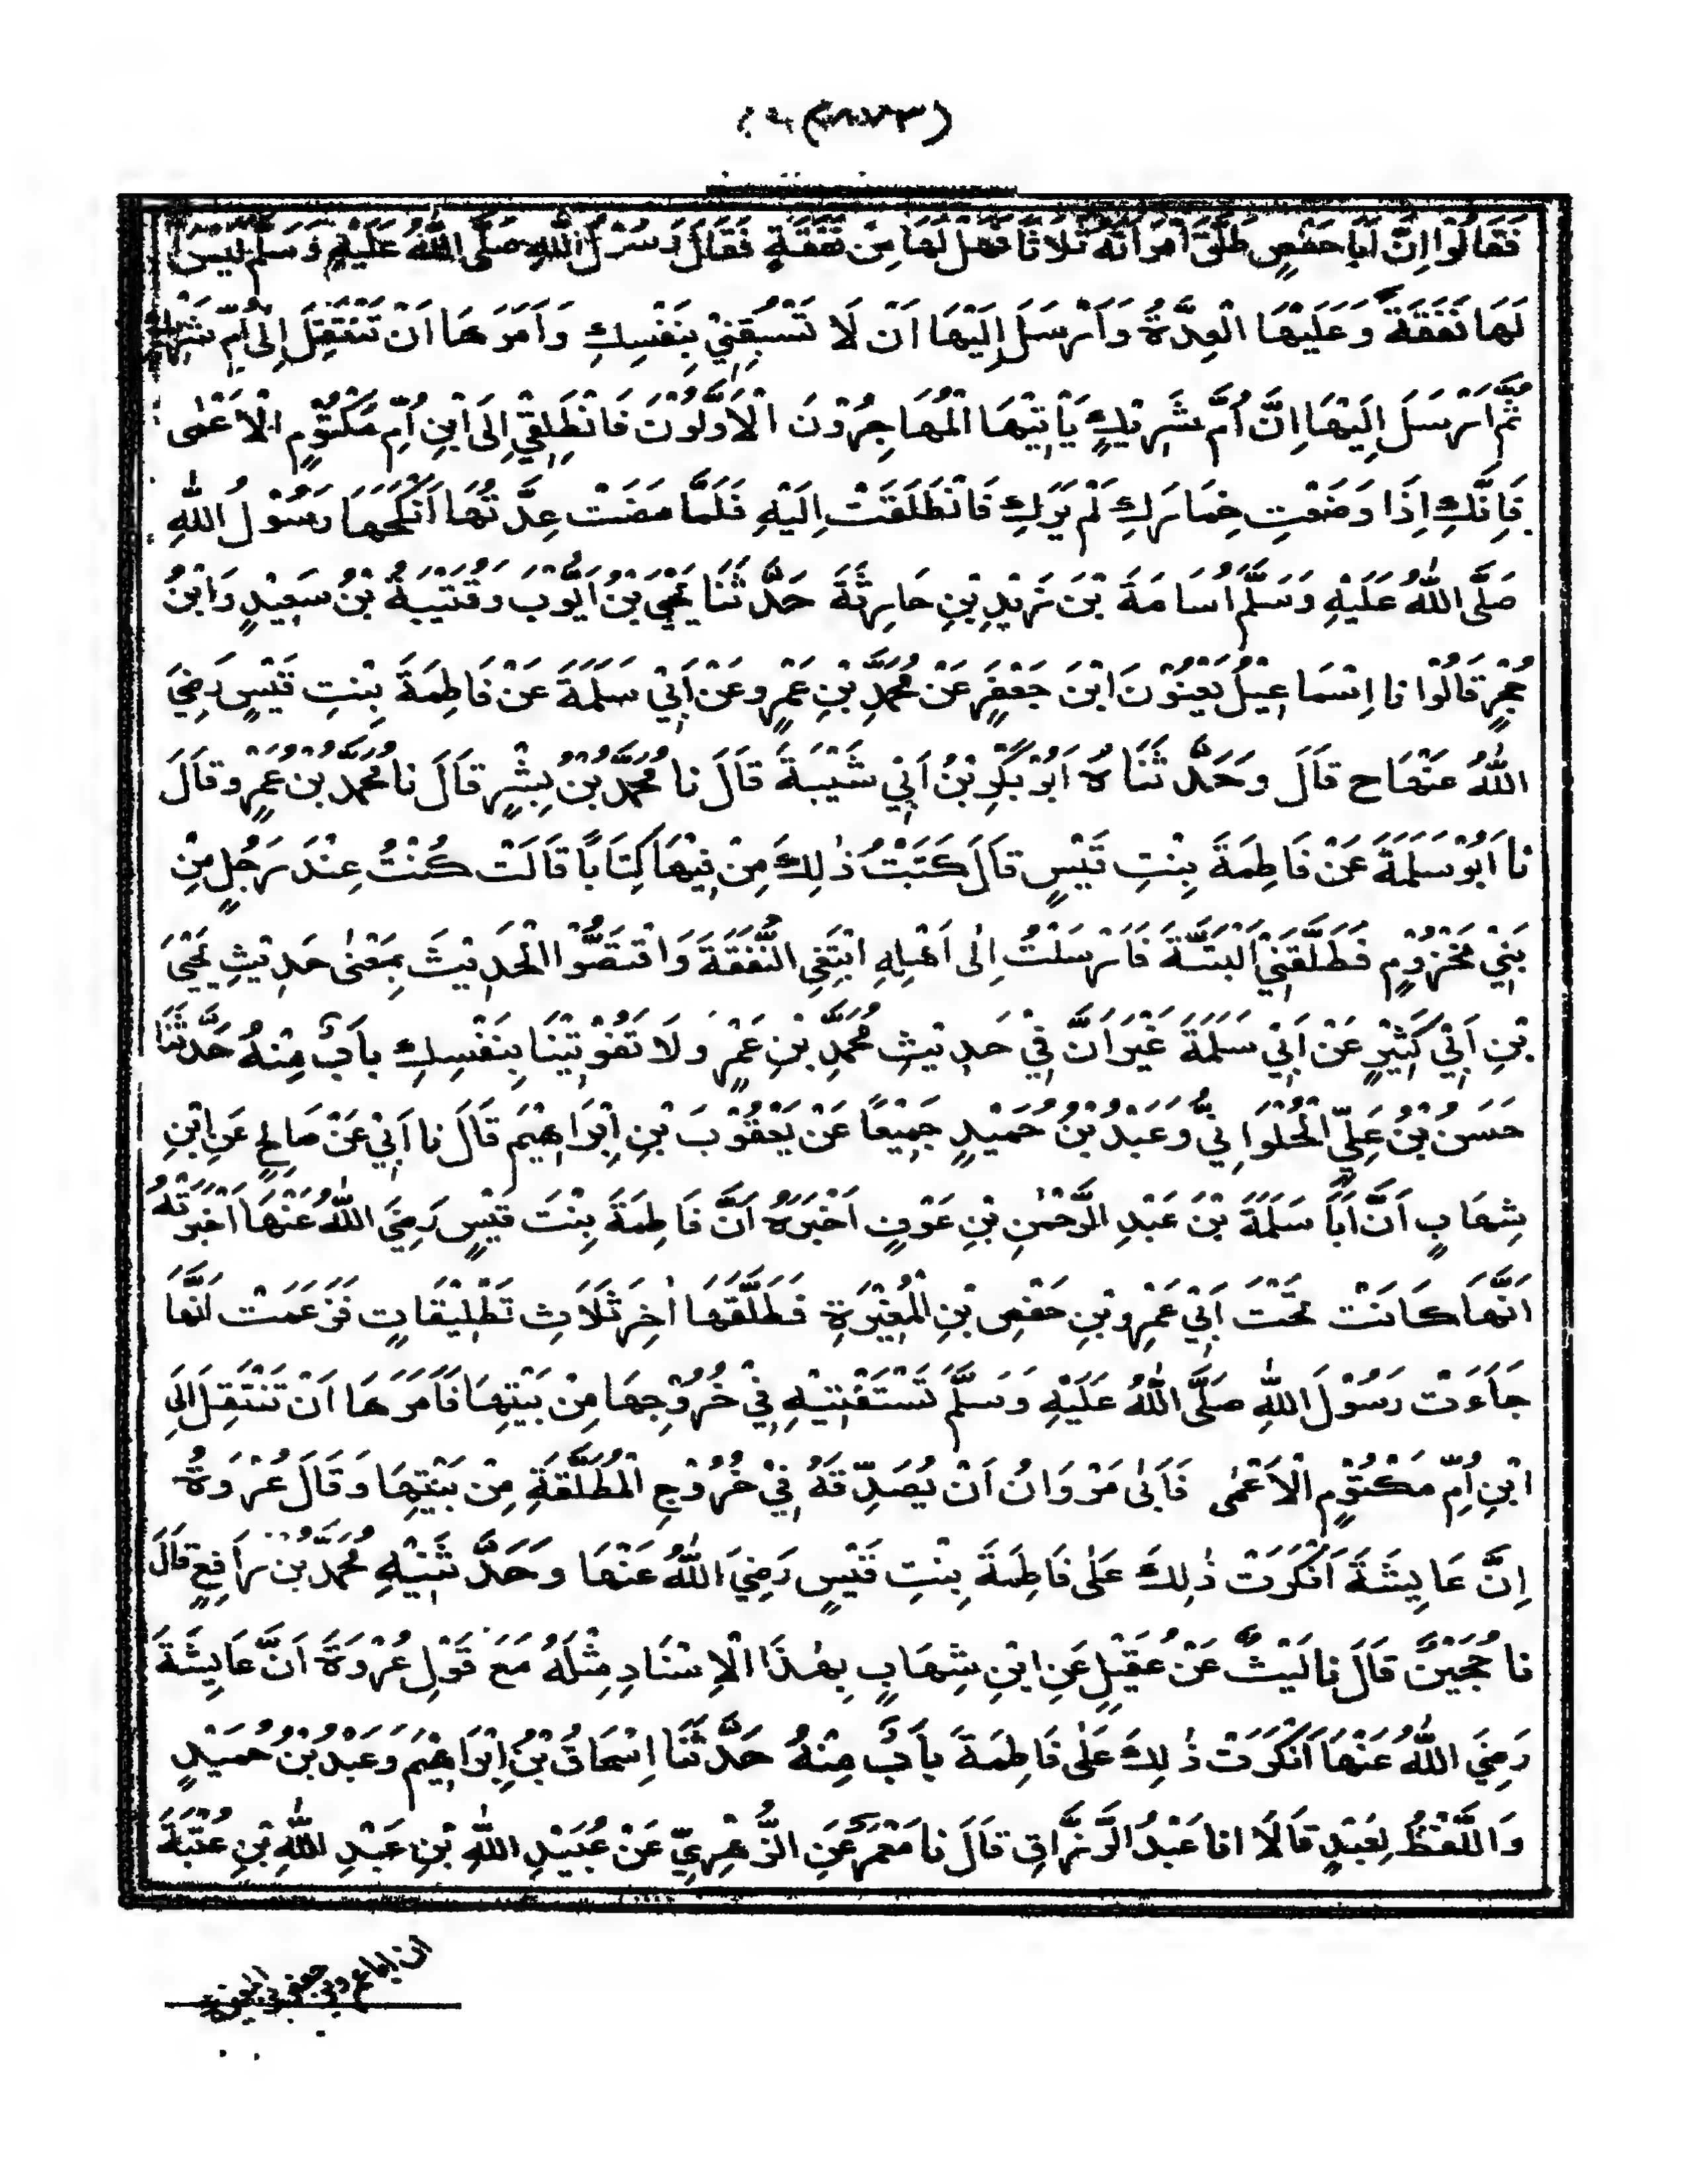 فَقَالُوْا اِنَّ اَبَا حَفْصٍ طَلَّقَ امْرَاَتَهُ ثَلَاثًا فَهَلْ لَهَا مِنْ نَفَقَةٍ فَقَالَ رَسُوْلُ اللّٰهِ صَلَّى اللّٰهُ عَلَيْهِ وَسَلَّمَ لَيْسَ
لَهَا نَفَقَةٌ وَعَلَيْهَا الْعِدَّةُ وَاَرْسَلَ اِلَيْهَا اَنْ لَا تَسْبِقِيْنِيْ بِنَفْسِكِ وَاَمَرَهَا اَنْ تَنْتَقِلَ اِلٰى اُمِّ شَرِيْكٍ
ثُمَّ اَرْسَلَ اِلَيْهَا اِنَّ اُمَّ شَرِيْكٍ يَاْتِيْهَا الْمُهَاجِرُوْنَ الْاَوَّلُوْنَ فَانْطَلِقِيْ اِلَى ابْنِ اُمِّ مَكْتُوْمٍ الْاَعْمٰى
فَاِنَّكِ اِذَا وَضَعْتِ خِمَارَكِ لَمْ يَرَكِ فَانْطَلَقَتْ اِلَيْهِ فَلَمَّا مَضَتْ عِدَّتُهَا اَنْكَحَهَا رَسُوْلُ اللّٰهِ
صَلَّى اللّٰهُ عَلَيْهِ وَسَلَّمَ اُسَامَةَ بْنَ زَيْدِ بْنِ حَارِثَةَ حَدَّثَنَا يَحْيَى بْنُ اَيُّوْبَ وَقُتَيْبَةُ بْنُ سَعِيْدٍ وَابْنُ
حُجْرٍ قَالُوْا نا اِسْمَاعِيْلُ يَعْنُوْنَ ابْنَ جَعْفَرٍ عَنْ مُحَمَّدِ بْنِ عَمْرٍو عَنْ اَبِيْ سَلَمَةَ عَنْ فَاطِمَةَ بِنْتِ قَيْسٍ رَضِيَ
اللّٰهُ عَنْهَا ح قَالَ وَحَدَّثَنَاهُ اَبُوْ بَكْرِ بْنُ اَبِيْ شَيْبَةَ قَالَ نا مُحَمَّدُ بْنُ بِشْرٍ قَالَ نا مُحَمَّدُ بْنُ عَمْرٍو قَالَ
نا اَبُوْ سَلَمَةَ عَنْ فَاطِمَةَ بِنْتِ قَيْسٍ قَالَ كَتَبْتُ ذٰلِكَ مِنْ فِيْهَا كِتَابًا قَالَتْ كُنْتُ عِنْدَ رَجُلٍ مِنْ
بَنِيْ مَخْزُوْمٍ فَطَلَّقَنِيْ الْبَتَّةَ فَاَرْسَلْتُ اِلٰى اَهْلِهِ ابْتَغِي النَّفَقَةَ وَاقْتَصُّوا الْحَدِيْثَ بِمَعْنٰى حَدِيْثِ يَحْيَى
بْنِ اَبِيْ كَثِيْرٍ عَنْ اَبِيْ سَلَمَةَ غَيْرَ اَنَّ فِيْ حَدِيْثِ مُحَمَّدِ بْنِ عَمْرٍ وَلَا تَفُوْتِيْنَا بِنَفْسِكِ بَابٌ مِنْهُ حَدَّثَنَا
حَسَنُ بْنُ عَلِيٍّ الْحُلْوَانِيُّ وَعَبْدُ بْنُ حُمَيْدٍ جَمِيْعًا عَنْ يَعْقُوْبَ بْنِ اِبْرَاهِيْمَ قَالَ نا اَبِيْ عَنْ صَالِحٍ عَنِ ابْنِ
شِهَابٍ اَنَّ اَبَا سَلَمَةَ بْنَ عَبْدِ الرَّحْمٰنِ بْنِ عَوْفٍ اَخْبَرَهُ اَنَّ فَاطِمَةَ بِنْتَ قَيْسٍ رَضِيَ اللّٰهُ عَنْهَا اَخْبَرَتْهُ
اَنَّهَا كَانَتْ تَحْتَ اَبِيْ عَمْرِو بْنِ حَفْصِ بْنِ الْمُغِيْرَةِ فَطَلَّقَهَا اٰخِرَ ثَلَاثِ تَطْلِيْقَاتٍ فَزَعَمَتْ اَنَّهَا
جَاءَتْ رَسُوْلَ اللّٰهِ صَلَّى اللّٰهُ عَلَيْهِ وَسَلَّمَ تَسْتَفْتِيْهِ فِيْ خُرُوْجِهَا مِنْ بَيْتِهَا فَاَمَرَهَا اَنْ تَنْتَقِلَ اِلَى
ابْنِ اُمِّ مَكْتُوْمٍ الْاَعْمٰى فَاَبٰى مَرْوَانُ اَنْ يُصَدِّقَهُ فِيْ خُرُوْجِ الْمُطَلَّقَةِ مِنْ بَيْتِهَا وَقَالَ عُرْوَةُ
اِنَّ عَايِشَةَ اَنْكَرَتْ ذٰلِكَ عَلٰى فَاطِمَةَ بِنْتِ قَيْسٍ رَضِيَ اللّٰهُ عَنْهَا وَحَدَّثَنِيْهِ مُحَمَّدُ بْنُ رَافِعٍ قَالَ
نا حُجَيْنٌ قَالَ نا لَيْثٌ عَنْ عُقَيْلٍ عَنِ ابْنِ شِهَابٍ بِهٰذَا الْاِسْنَادِ مِثْلَهُ مَعَ قَوْلِ عُرْوَةَ اَنَّ عَايِشَةَ
رَضِيَ اللّٰهُ عَنْهَا اَنْكَرَتْ ذٰلِكَ عَلٰى فَاطِمَةَ بَابٌ مِنْهُ حَدَّثَنَا اِسْحَاقُ بْنُ اِبْرَاهِيْمَ وَعَبْدُ بْنُ حُمَيْدٍ
وَاللَّفْظُ لِعَبْدٍ قَالَا انا عَبْدُ الرَّزَّاقِ قَالَ نا مَعْمَرٌ عَنِ الزُّهْرِيِّ عَنْ عُبَيْدِ اللّٰهِ بْنِ عَبْدِ اللّٰهِ بْنِ عُتْبَةَ